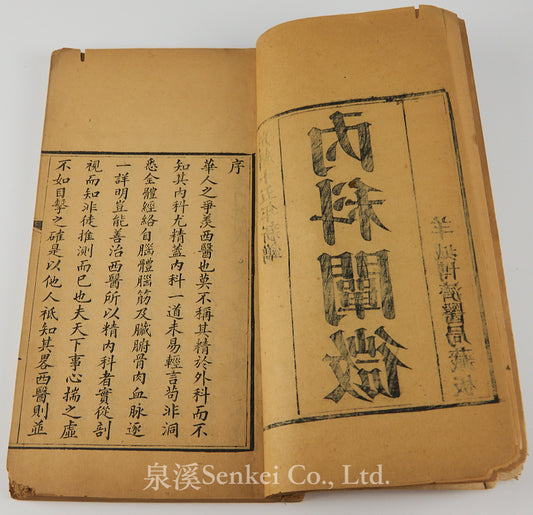 羊城博濟醫局藏板
內科闡微
序
華人之爭羨西醫也莫不稱其精於外科而不
知其內科尤精蓋內科一道未易輕言苟非洞
悉全體經絡自腦體腦筋及臟腑骨肉血脉逐
一詳明豈能善治西醫所以精內科者實從剖
視而知非徒推測而已也夫天下事心揣之虛
不如目擊之確是以他人祇知其畧西醫則並
泉溪Senkei Co., Ltd.